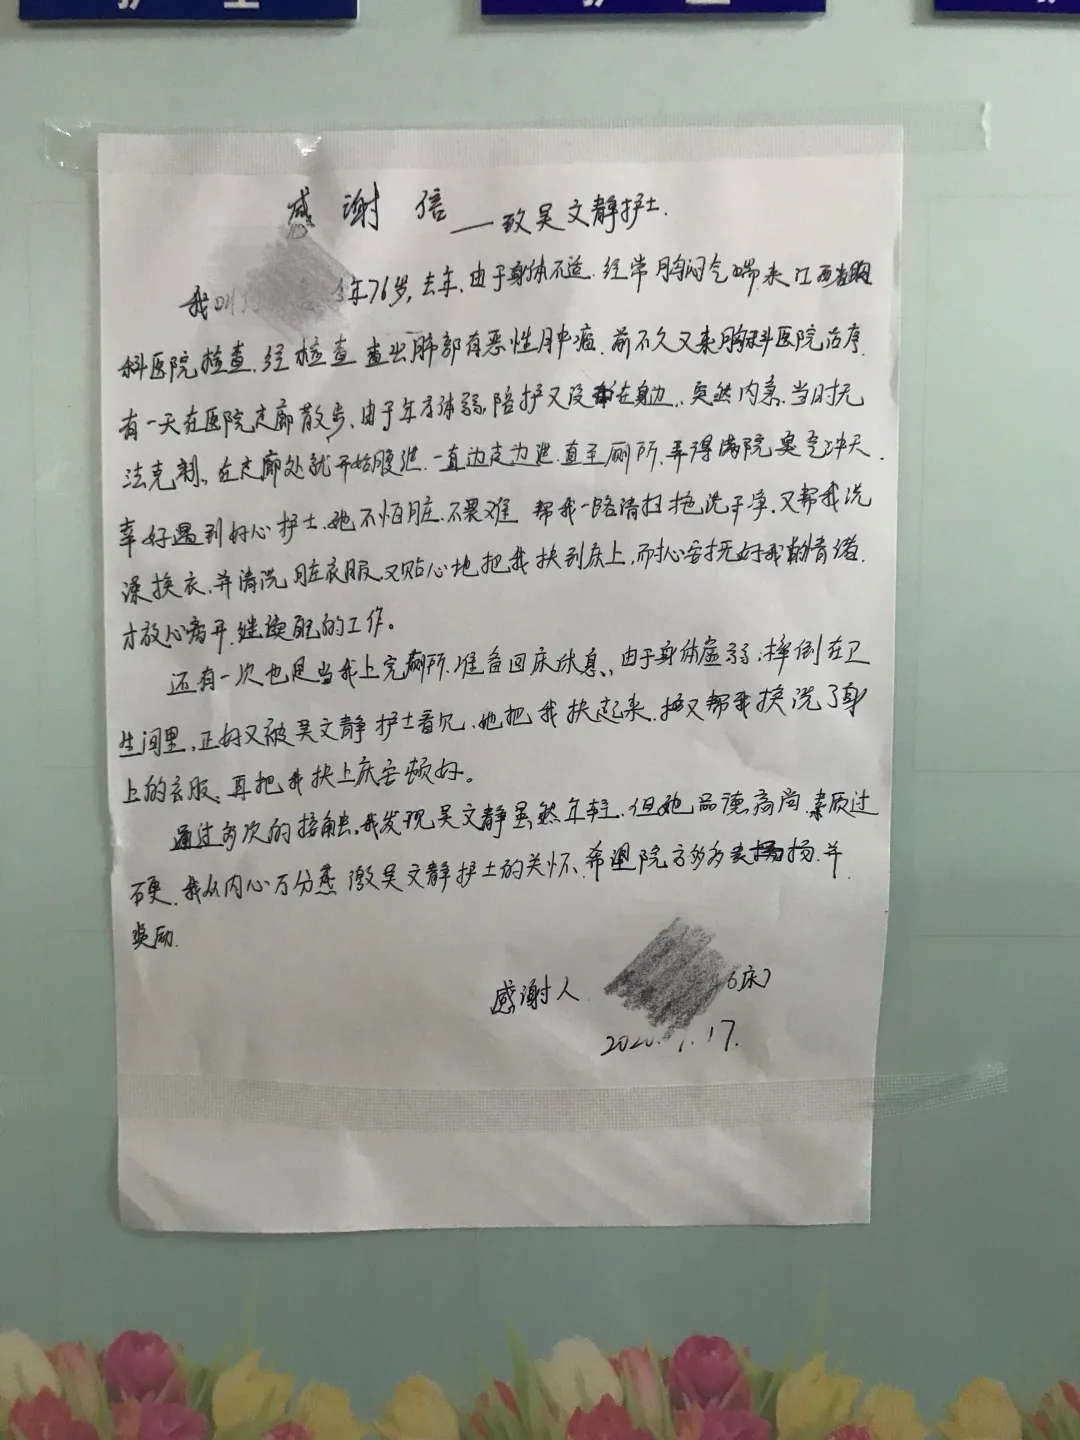 护士
护士
护
感谢信——致吴文静护士.
我叫 今年76岁,去年.由于身体不适.经常胸闷气喘.来江西省胸
科医院检查.经检查查出肺部有恶性肿瘤.前不久又来胸科医院治疗.
有一天在医院走廊散步、由于年老体弱,陪护又没有在身边.突然内急.当时无
法克制.在走廊处就开始腹泄.一直边走为泄.直至厕所.弄得满院臭气冲天.
幸好遇到好心护士.她不怕脏.不畏难 帮我一路清扫拖洗干净.又帮我洗
澡换衣.并清洗脏衣服.又贴心地把我扶到床上,耐心安抚好我的情绪.
才放心离开.继续她的工作。
还有一次也是当我上完厕所.准备回床休息、由于身体虚弱;摔倒在卫
生间里,正好又被吴文静护士看见.她把我扶起来.又帮我换洗了身
上的衣服、再把我扶上床安顿好。
通过多次的接触.我发现吴文静虽然年轻.但她品德高尚.素质过
硬.我从内心万分感激吴文静护士的关怀、希望院方多多表扬.并
奖励.
感谢人 6床)
2020. .17.